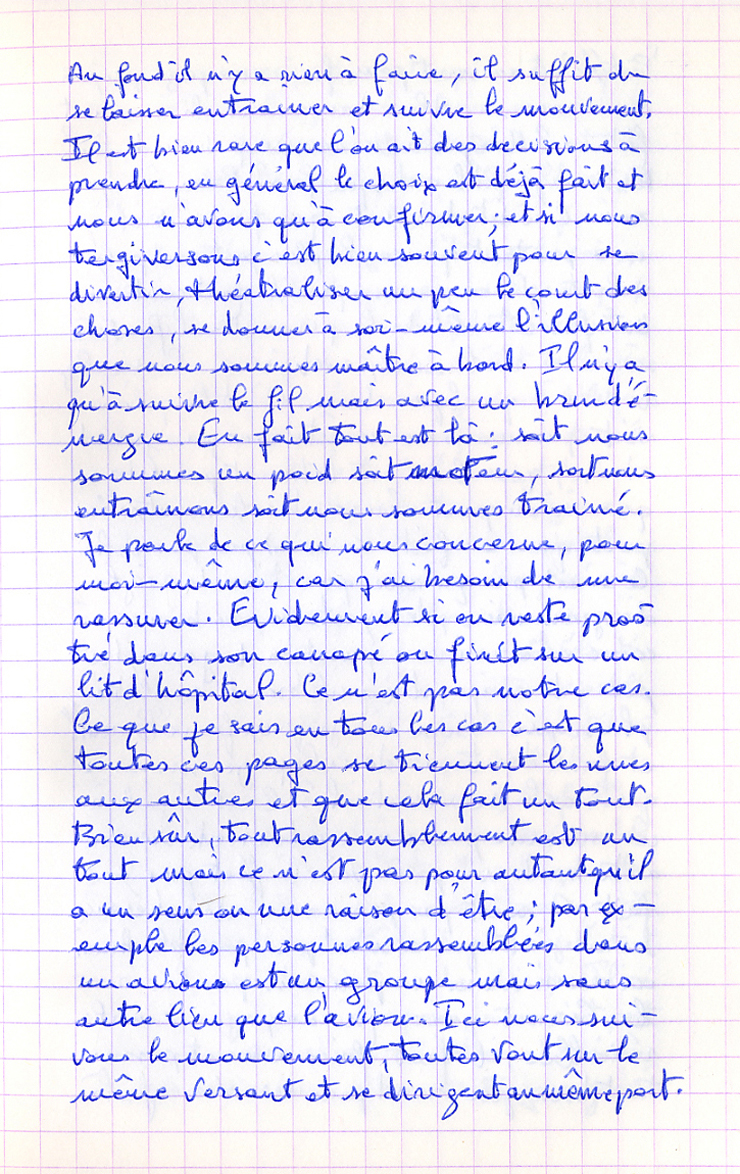 Au fond il n'y a rien à faire, il suffit de
se laisser entrainer et suivre le mouvement.
Il est bien rare que l'on ait des decisions à
prendre, en général le choix est déjà fait et
nous n'avons qu'à confirmer; et si nous
tergiversons c'est bien souvent pour se
divertir, théatraliser un peu le court des
choses, se donner à soi-même l'illusion
que nous sommes maître à bord. Il n'y a
qu'à suivre le fil mais avec un brin d'é-
nergie. En fait tout est là: soit nous
sommes un poid soit moteur, soit nous
entraînons soit nous sommes trainé.
Je parle de ce qui nous concerne, pour
moi-même, car j'ai besoin de me
rassurer. Evidement si on reste pros
tré dans son canapé on finit sur un
lit d'hôpital. Ce n'est pas notre cas.
Ce que je sais en tous les cas c'est que
toutes ces pages se tiennent les unes
aux autres et que cela fait un tout.
Bien sûr, tout rassemblement est un
tout mais ce n'est pas pour autant qu'il
a un sens ou une raison d'être; par ex-
emple les personnes rassemblées dans
un avions est un groupe mais sans
autre lieu que l'avion. Ici nous sui-
vons le mouvement, toutes vont sur le
même versant et se dirigent au même port.